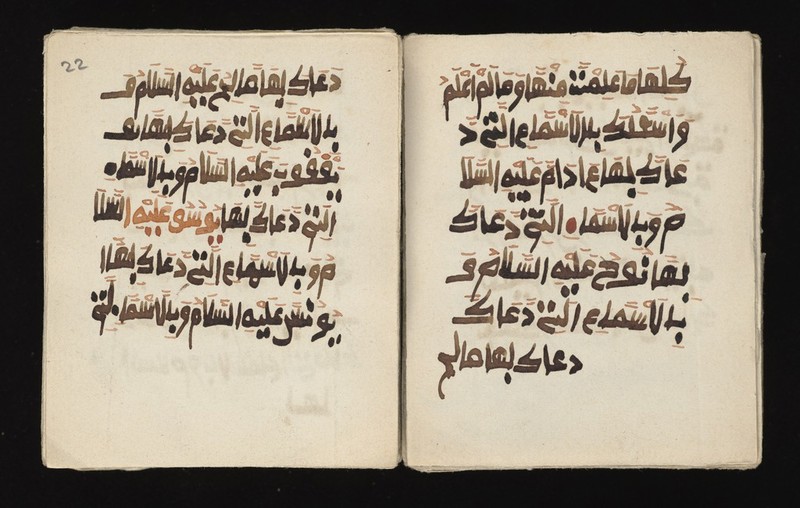 كلها ما علمت منها وما لم أعلم
وأسئلك بالاسماء التي د
عاك بها ءادم عليه السلا
م وبالاسماء التي دعاك
بها نوح عليه السلام و
بالاسماء التي دعاك
دعاك بها صالح
22
دعاك بها صالح عليه السلام و
بالاسماء التي دعاك بها يعـ
يعقوب عليه السلام وبالاسماء
التي دعاك بها يوسف عليه السلا
م وبالاسماء التي دعاك بها ا
يونس عليه السلام وبالاسماء التي